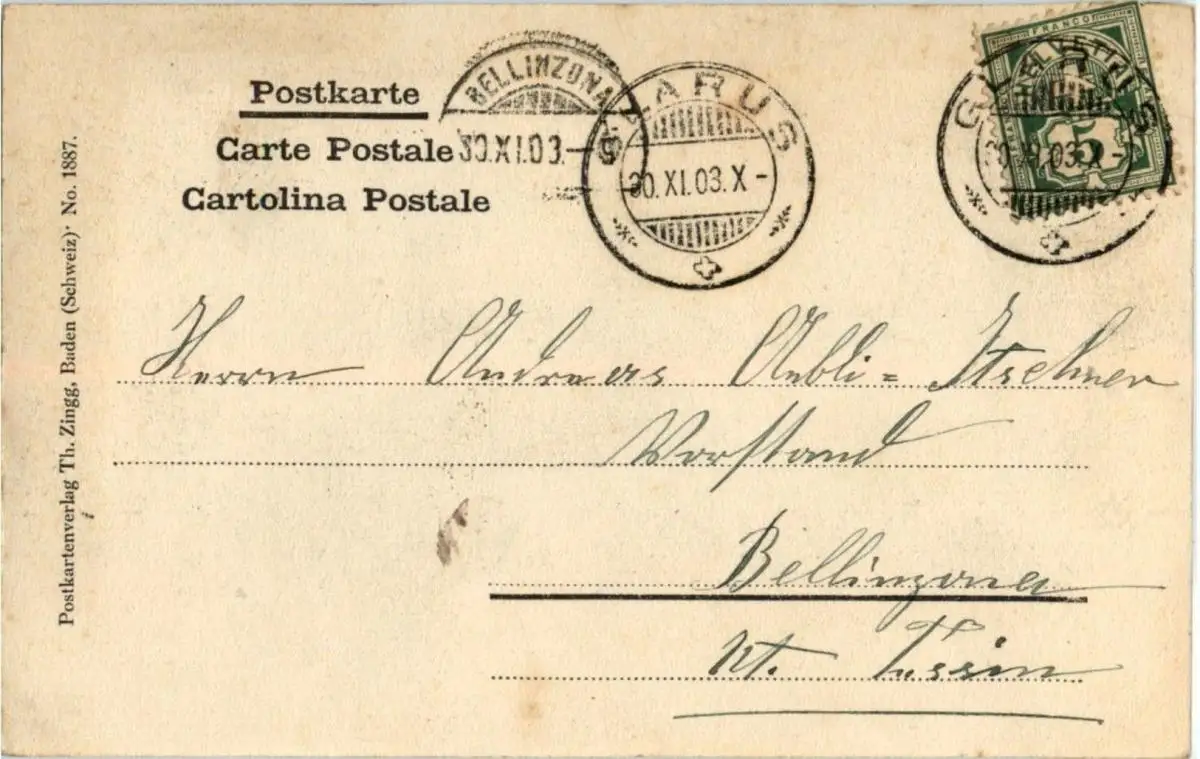 Postkarte
Carte Postale
Cartolina Postale
BELLINZONA
30.XI.03.–5
GLARUS
30.XI.03.X–
FRANCO
HELVETIA
5
GLARUS
30.XI.03.X–
Postkartenverlag Th. Zingg, Baden (Schweiz)· No. 1887.
Herrn Andreas Aebli = Itschner
Vorstand
Bellinzona
Kt. Tessin